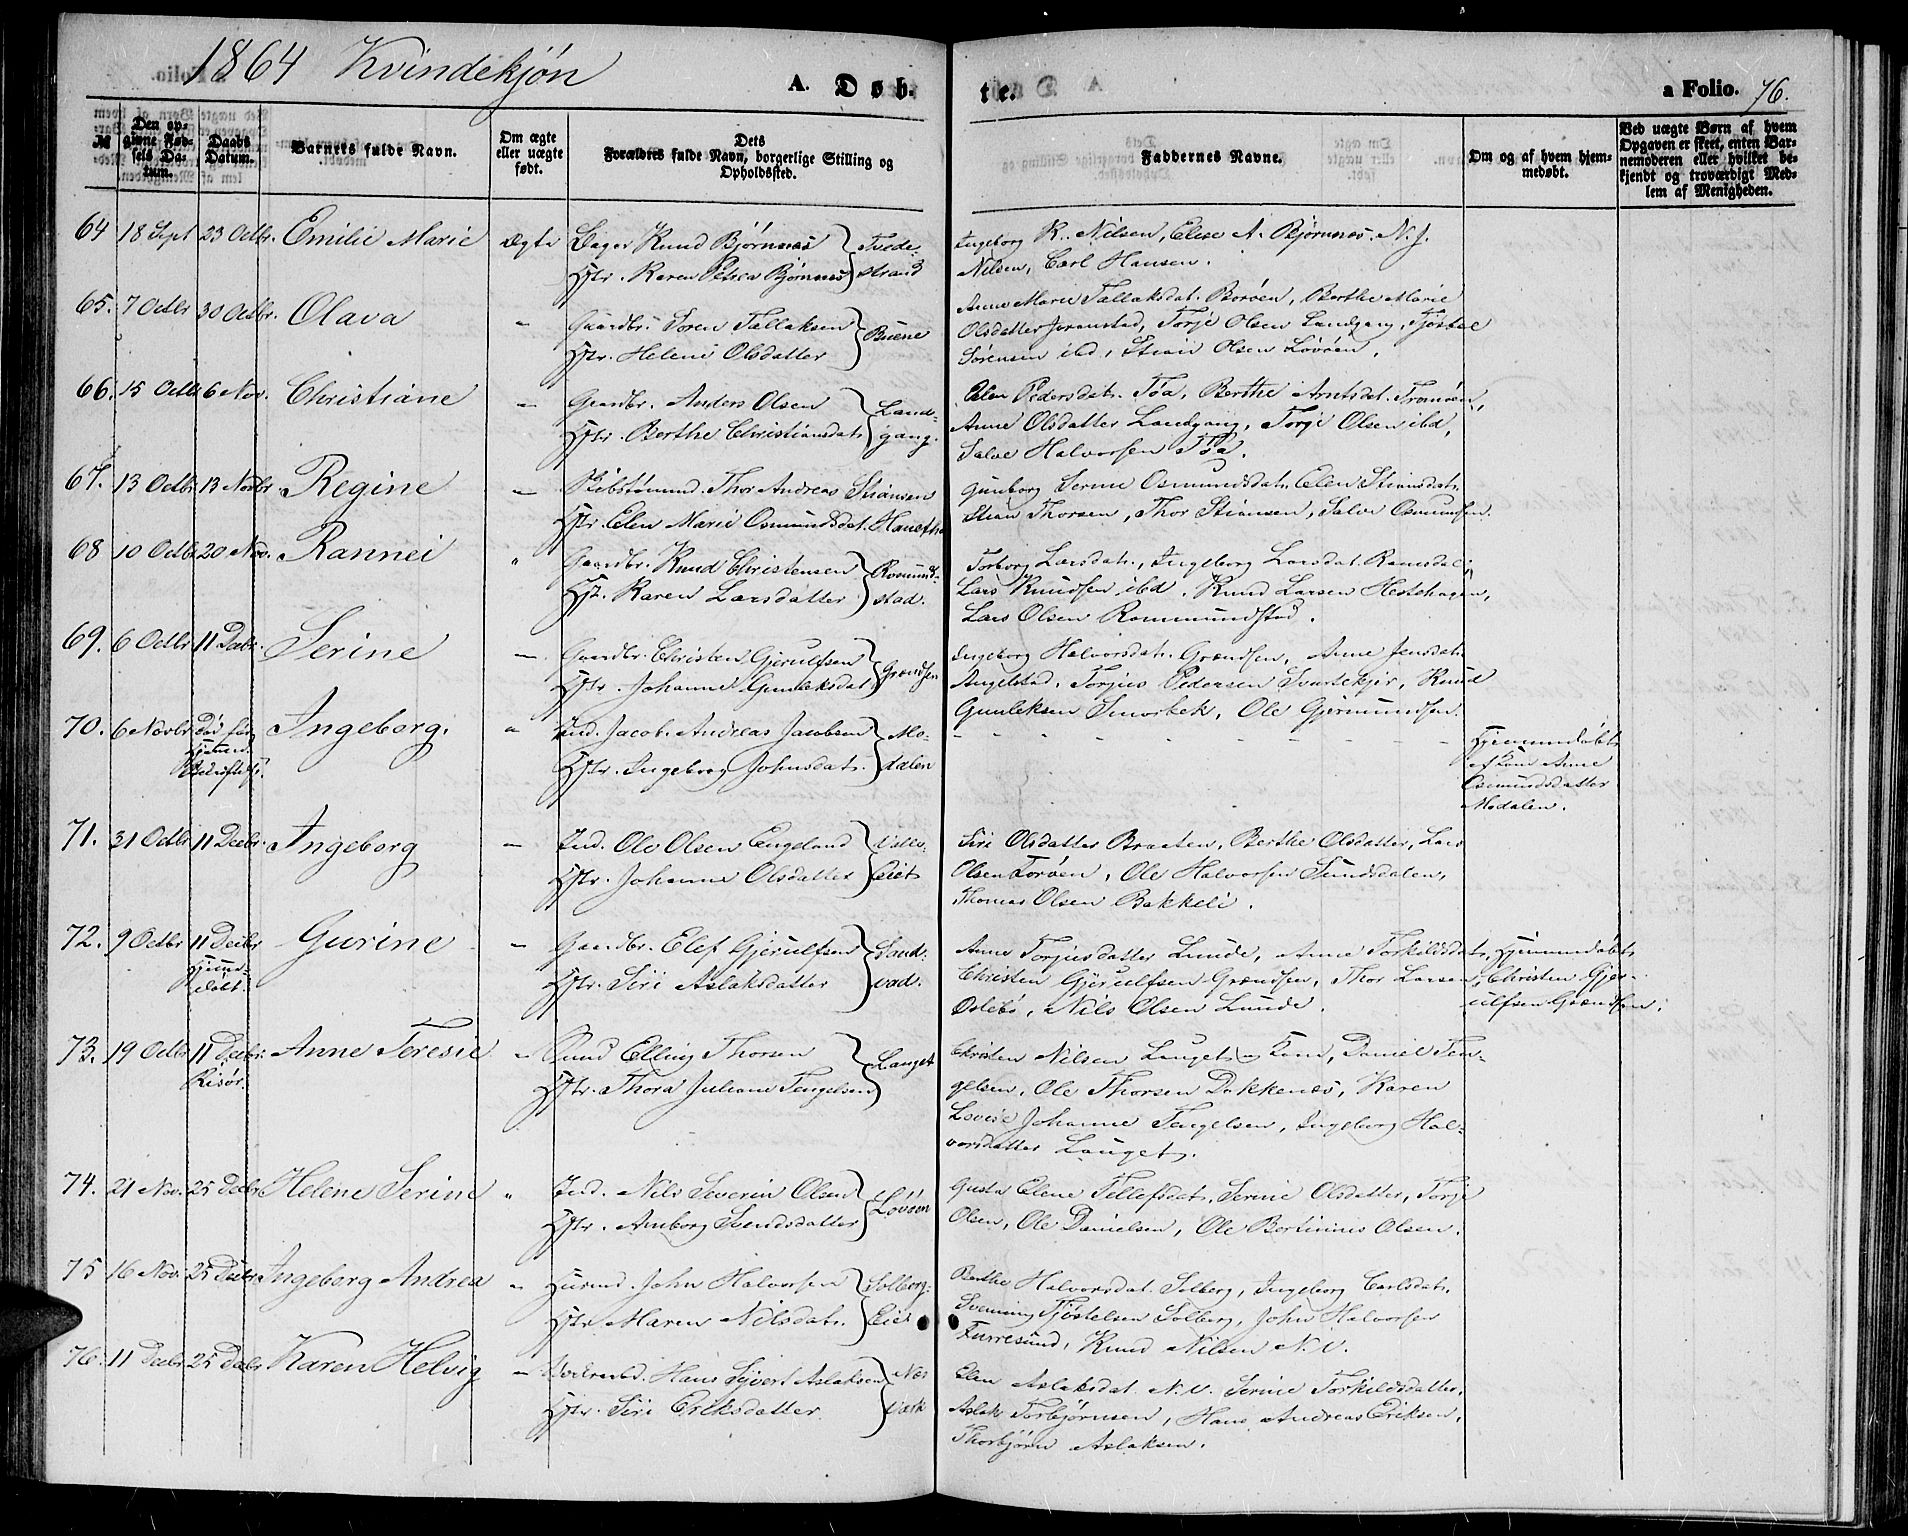 1864 Kvindekjøn
A. Døb.
te.
a Folio. 76.
№
Den opgivne Fødsels Datum.
Daabs Datum.
Barnets fulde Navn.
Om ægte eller uægte født.
Dets Forældres fulde Navn, borgerlige Stilling og Opholdssted.
Faddernes Navne.
Om og af hvem hjemmedøbt.
Ved uægte Børn af hvem Opgaven er skeet, enten Barnemoderen eller hvilket bekjendt og troværdigt Medlem af Menigheden.
64 18 Sept 23 Octbr. Emilie Marie ægte Knud Bjørnnæs Tvede-
Hstr. Karen Petrea Bjørnnæs strand
Ingeborg K. Nilsen, Elise A. Bjørnnæs. N. J.
Nilsen, Carl Hansen.
65. 7 Octbr 30 Octbr. Olava " Gaardbr. Søren Tallaksen Buene
Hstr. Helene Olsdatter
Anne Marie Tallaksdat. Borøen, Berthe Marie
Olsdatter Joranstad, Torje Olsen Landgang, Tjøstel
Sørensen ibd, Stian Olsen Lovøen.
66. 15 Octbr 6 Nov. Christiane " Gaardbr. Anders Olsen Land-
Hstr. Berthe Christiansdat. gang.
Elen Pedersdat. Töa, Berthe Arntsdat. Tromöen,
Anne Olsdatter Landgang, Torje Olsen ibd,
Salve Halvorsen Töa.
67. 13 Octbr 13 Novbr. Regine " Skibstømmd. Thor Andreas Stiansen
Hstr. Elen Marie Osmundsdat.
Gunborg Serine Osmundsdat. Elen Stiansdat.
Stian Thorsen, Thor Stiansen, Salve Osmundsen.
68 10 Octbr. 20 Nov. Rannei " Gaardbr. Knud Christensen Romund-
Hst. Karen Larsdatter stad.
Torborg Larsdat., Ingeborg Larsdat. Ramsdal,
Lars Knudsen ibd. Knud Larsen Hestehagen,
Lars Olsen Rommundstad.
69. 6 Octbr 11 Decbr. Serine " Gaardbr. Christen Gjerulfsen Grændsen
Hstr. Johanne Gunleksdat
Ingeborg Halvorsdat. Grændsen, Anne Jensdat.
Angelstad, Torjus Pedersen Svartekjær, Knud
Gunleksen Smørbek, Ole Gjermundsen.
70. 6 Novbr Død før Ingeborg. " Ind. Jacob Andreas Jacobsen Mo-
Hjemmed. Bekræftelse. Hstr. Ingeborg Johnsdat. dalen
Hjemmedøbt
af Kone Anne
Osmundsdatter
Modalen.
71. 31 Octbr 11 Decbr. Ingeborg " Ind. Ole Olsen Engeland
Hstr. Johanne Olsdatter Eiet
Siri Olsdatter Braaten, Berthe Olsdatter, Lars
Olsen Torøen, Ole Halvorsen Sundsdalen,
Thomas Olsen Bakkeli.
72. 9 Octbr 11 Decbr Gurine " Gaardbr. Elef Gjerulfsen Sand-
Hjemmedøbt. Hstr. Siri Aslaksdatter vad.
Anne Torjusdatter Lunde, Anne Torkildsdat,
Christen Gjerulfsen Grændsen, Thor Larsen
Oslebö, Nils Olsen Lunde.
Hjemmedøbt
Christen Gjer-
ulfsen Grændsen.
73. 19 Octbr 11 Decbr. Anne Teresie " Elling Thorsen Langet
Risør. Hstr. Thora Juliane Tengelsen
Christen Nilsen Langet og Kone, Daniel Ten-
gelsen, Ole Thorsen Dokkenæs, Karen
Lovise Johanne Tengelsen, Ingeborg Hal-
vorsdatter Langet.
74. 21 Nov. 25 Decbr Helene Serine " Ind. Nils Severin Olsen Lovøen
Hstr. Amborg Svendsdatter
Gusta Elene Tellefsdat. Serine Olsdatter, Torje
Olsen, Ole Danielsen, Ole Bertinius Olsen.
75 16 Nov. 25 Decbr Ingeborg Andrea " Huusmd. John Halvorsen Solberg-
Hstr Maren Nilsdat. Eiet
Berthe Halvorsdat. Solberg, Ingeborg Carlsdat.
Svenning Tjøstelsen Solberg, John Halvorsen
Furresund, Knud Nilsen N. V.
76. 11 Decbr 25 Decbr Karen Helvig " Hans Syvert Aslaksen Næs
Hstr. Siri Eriksdatter Værk
Elen Aslaksdat. N. V. Serine Torkildsdatter,
Aslak Torbjørnsen, Hans Andreas Eriksen,
Thorbjörn Aslaksen.